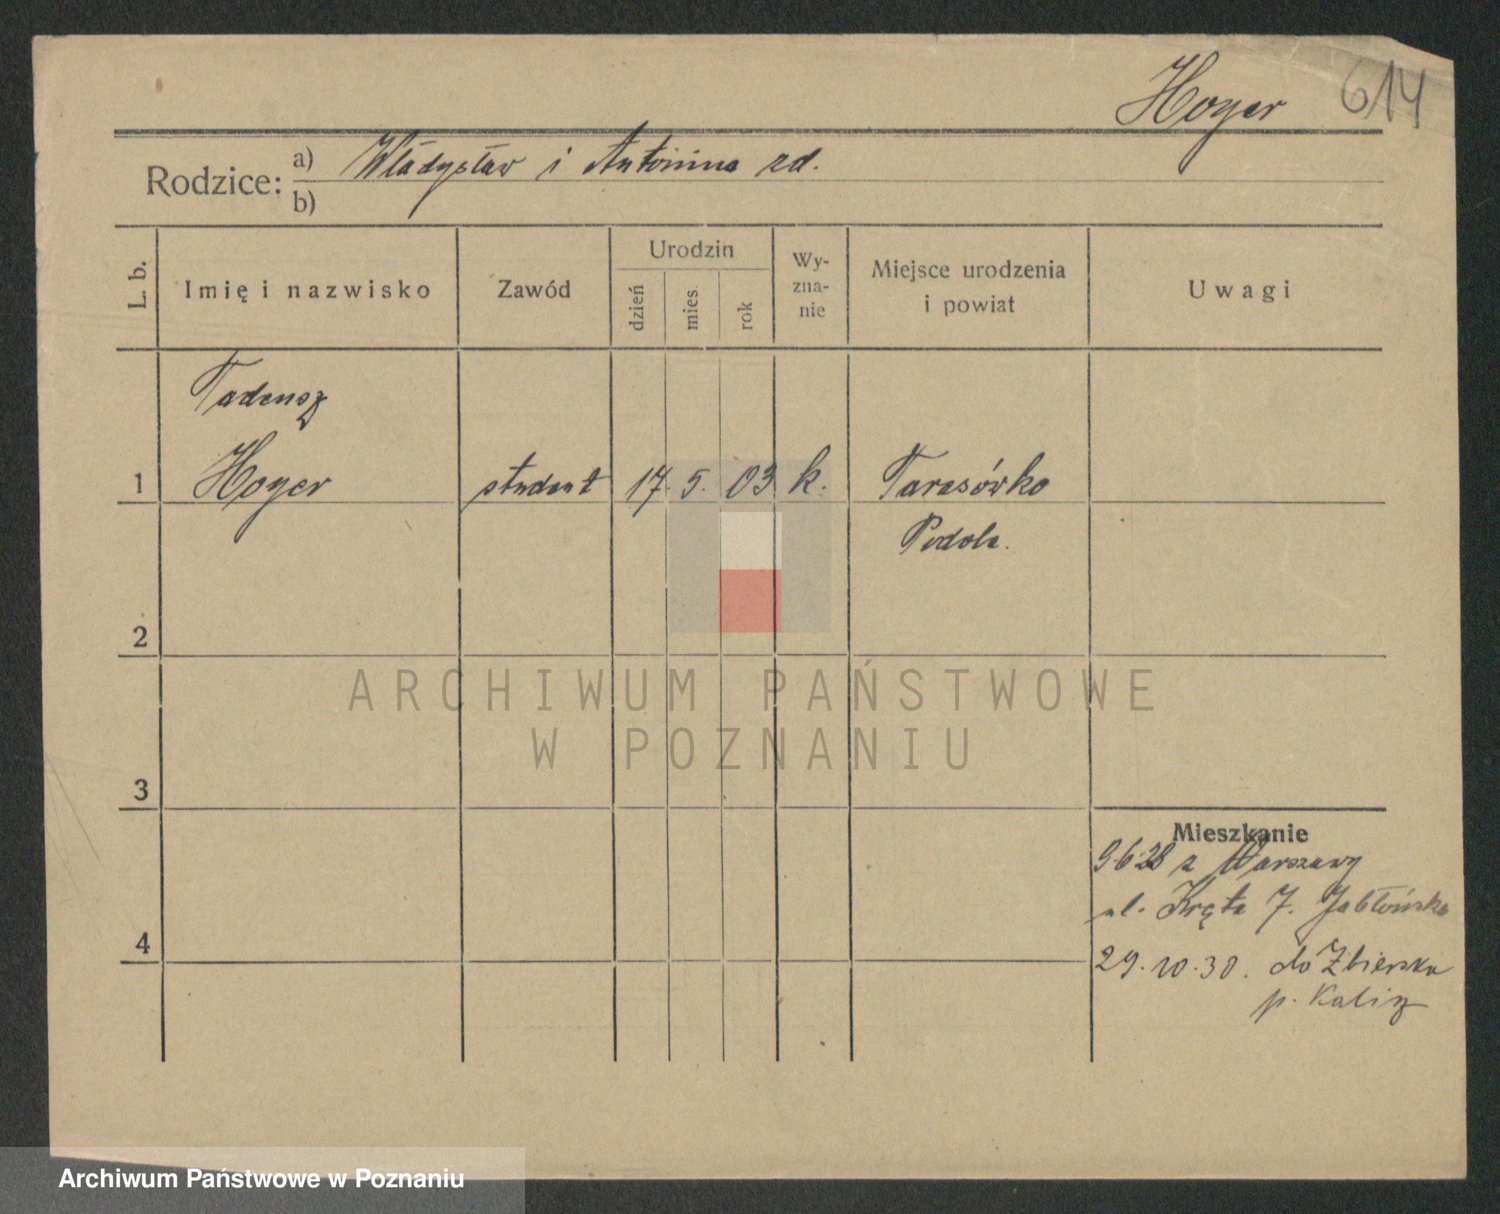 Hoyer 614
Rodzice: a) Władysław i Antonina zd.
b)
L. b. Imię i nazwisko Zawód Urodzin dzień mies. rok Wy-zna-nie Miejsce urodzenia i powiat Uwagi
Tadeusz
1 Hoyer student 17. 5. 03 k. Tarasówko
Podole.
2
ARCHIWUM PAŃSTWOWE
W POZNANIU
3
Mieszkanie
9.6.28 z Warszawy
ul. Kręta 7. Jabłońska
4
29.10.30. do Zbierska
p. Kalisz
Archiwum Państwowe w Poznaniu